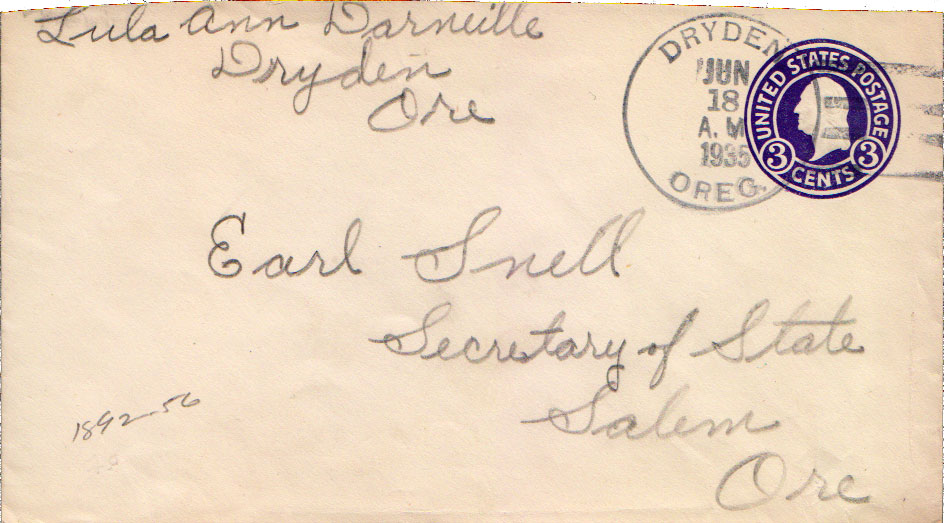 Lula Ann Darneille
Dryden
Ore
DRYDEN
JUN
18
A.M
1935
OREG.
UNITED STATES POSTAGE
3 CENTS 3
Earl Snell
Secretary of State
Salem
Ore
1892-56